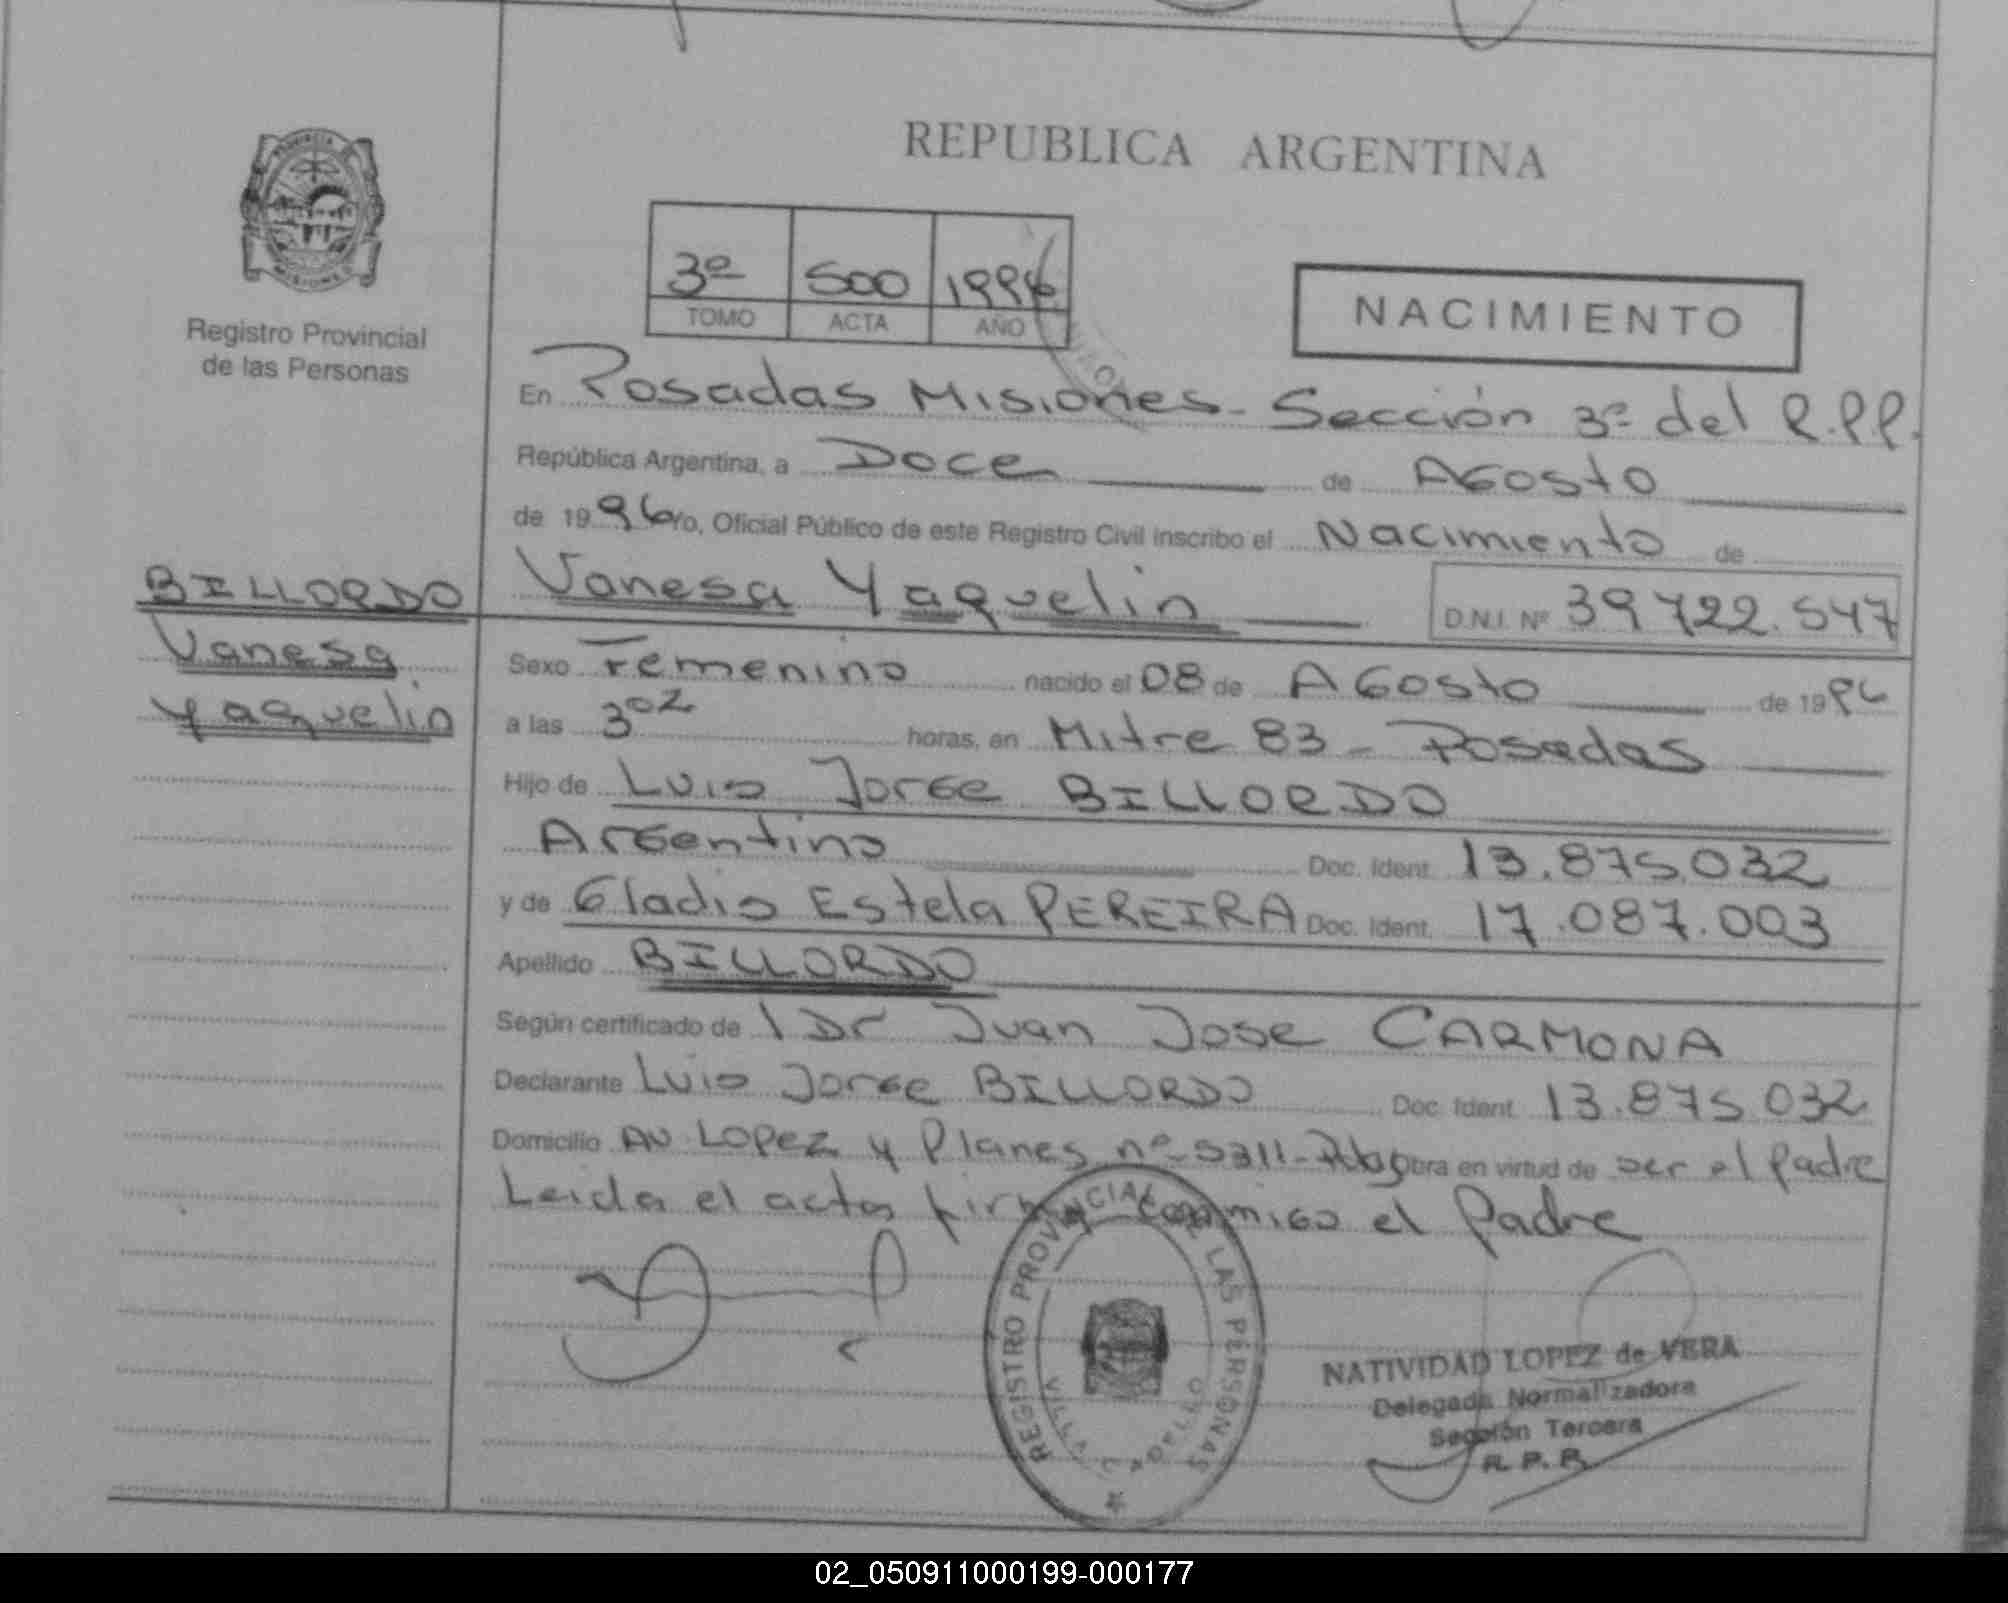 REPUBLICA ARGENTINA
PROVINCIA
MISIONES
Registro Provincial
de las Personas
3º 500 1996
TOMO ACTA AÑO
NACIMIENTO
En Posadas Misiones - Sección 3º del R.P.P.
República Argentina, a Doce de AGosto
de 1996 Yo, Oficial Público de este Registro Civil inscribo el Nacimiento de
Vanesa Yaquelin D.N.I. Nº 39722.547
BILLORDO
Vanesa
Yaquelin
Sexo Femenino nacido el 08 de AGosto de 1996
a las 3⁰² horas, en Mitre 83 - Posadas
Hijo de Luis JorGe BILLORDO
ArGentino Doc. Ident. 13.875.032
y de Gladis Estela PEREIRA Doc. Ident. 17.087.003
Apellido BILLORDO
Según certificado de l Dr Juan Jose CARMONA
Declarante Luis JorGe BILLORDO Doc. Ident. 13.875 032
Domicilio AV. LOPez y Planes nº 5311 - obra en virtud de ser el Padre
Leida el acta firma conmiGo el Padre
REGISTRO PROVINCIAL DE LAS PERSONAS
VILLA
NATIVIDAD LOPEZ de VERA
Delegada Normalizadora
Sección Tercera
R. P. P.
02_050911000199-000177